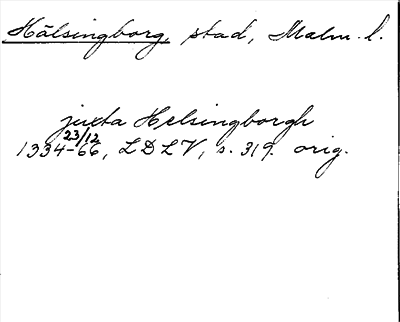 Hälsingborg, stad, Malm. l.
juxta Helsingborgh
23/12
1334-66, L D L V, s. 319. orig.